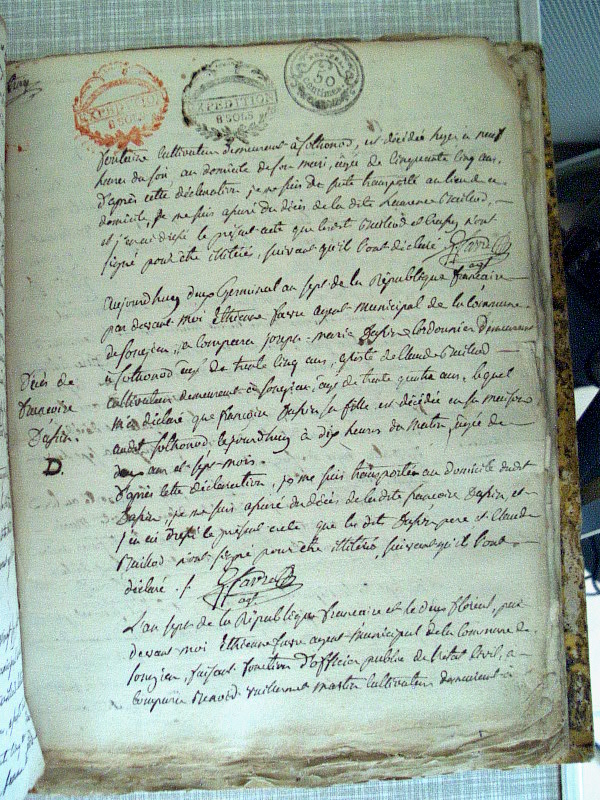 EXPEDITION
8 SOLS
EXPEDITION
8 SOLS
50
Centimes
cultivateur demeurant à Solhonod, est décédée hyer à neuf
heures du soir au domicile de son mari, agée de Cinquante Cinq ans,
d'après cette déclaration je me suis de suite transporté au lieu de ce
domicile, je me suis assuré du décès de la dite
et j'en ai dressé le présent acte que
signé pour être illitérés, suivant qu'il l'ont déclaré
agt
Aujourdhuy deux Germinal an sept de la République française
par devant moi Ethienne favre agent municipal de la Commune
de Songieu, a Comparu joseph marie Dapin Cordonnier demeurant
à Solhonod agé de trente Cinq ans, de Claude
Cultivateur demeurant à Songieu, agé de trente quatre ans, lequel
m'a déclaré que françoise Dapin sa fille est décédée en sa maison
audit Solhonod, lejourdhuy à dix heures du Matin, agée de
deux ans et sept mois.
Décès de
francoise
Dapin.
D.
D'après cette déclaration, je me suis transporté au domicile dudit
Dapin, je me suis assuré du décès de ladite françoise Dapin, et
j'en ai dressé le présent acte que les dit Dapin père et Claude
n'ont signé pour être illitérés, suivant qu'il l'ont
déclaré ./.
agt
L'an sept de la République francaise et le deux floreal, par
devant moi Ethienne favre agent municipal de la Commune de
Songieu, faisant fonction d'officier public de l'etat Civil, a
Comparu Benoit martin Cultivateur demeurant à